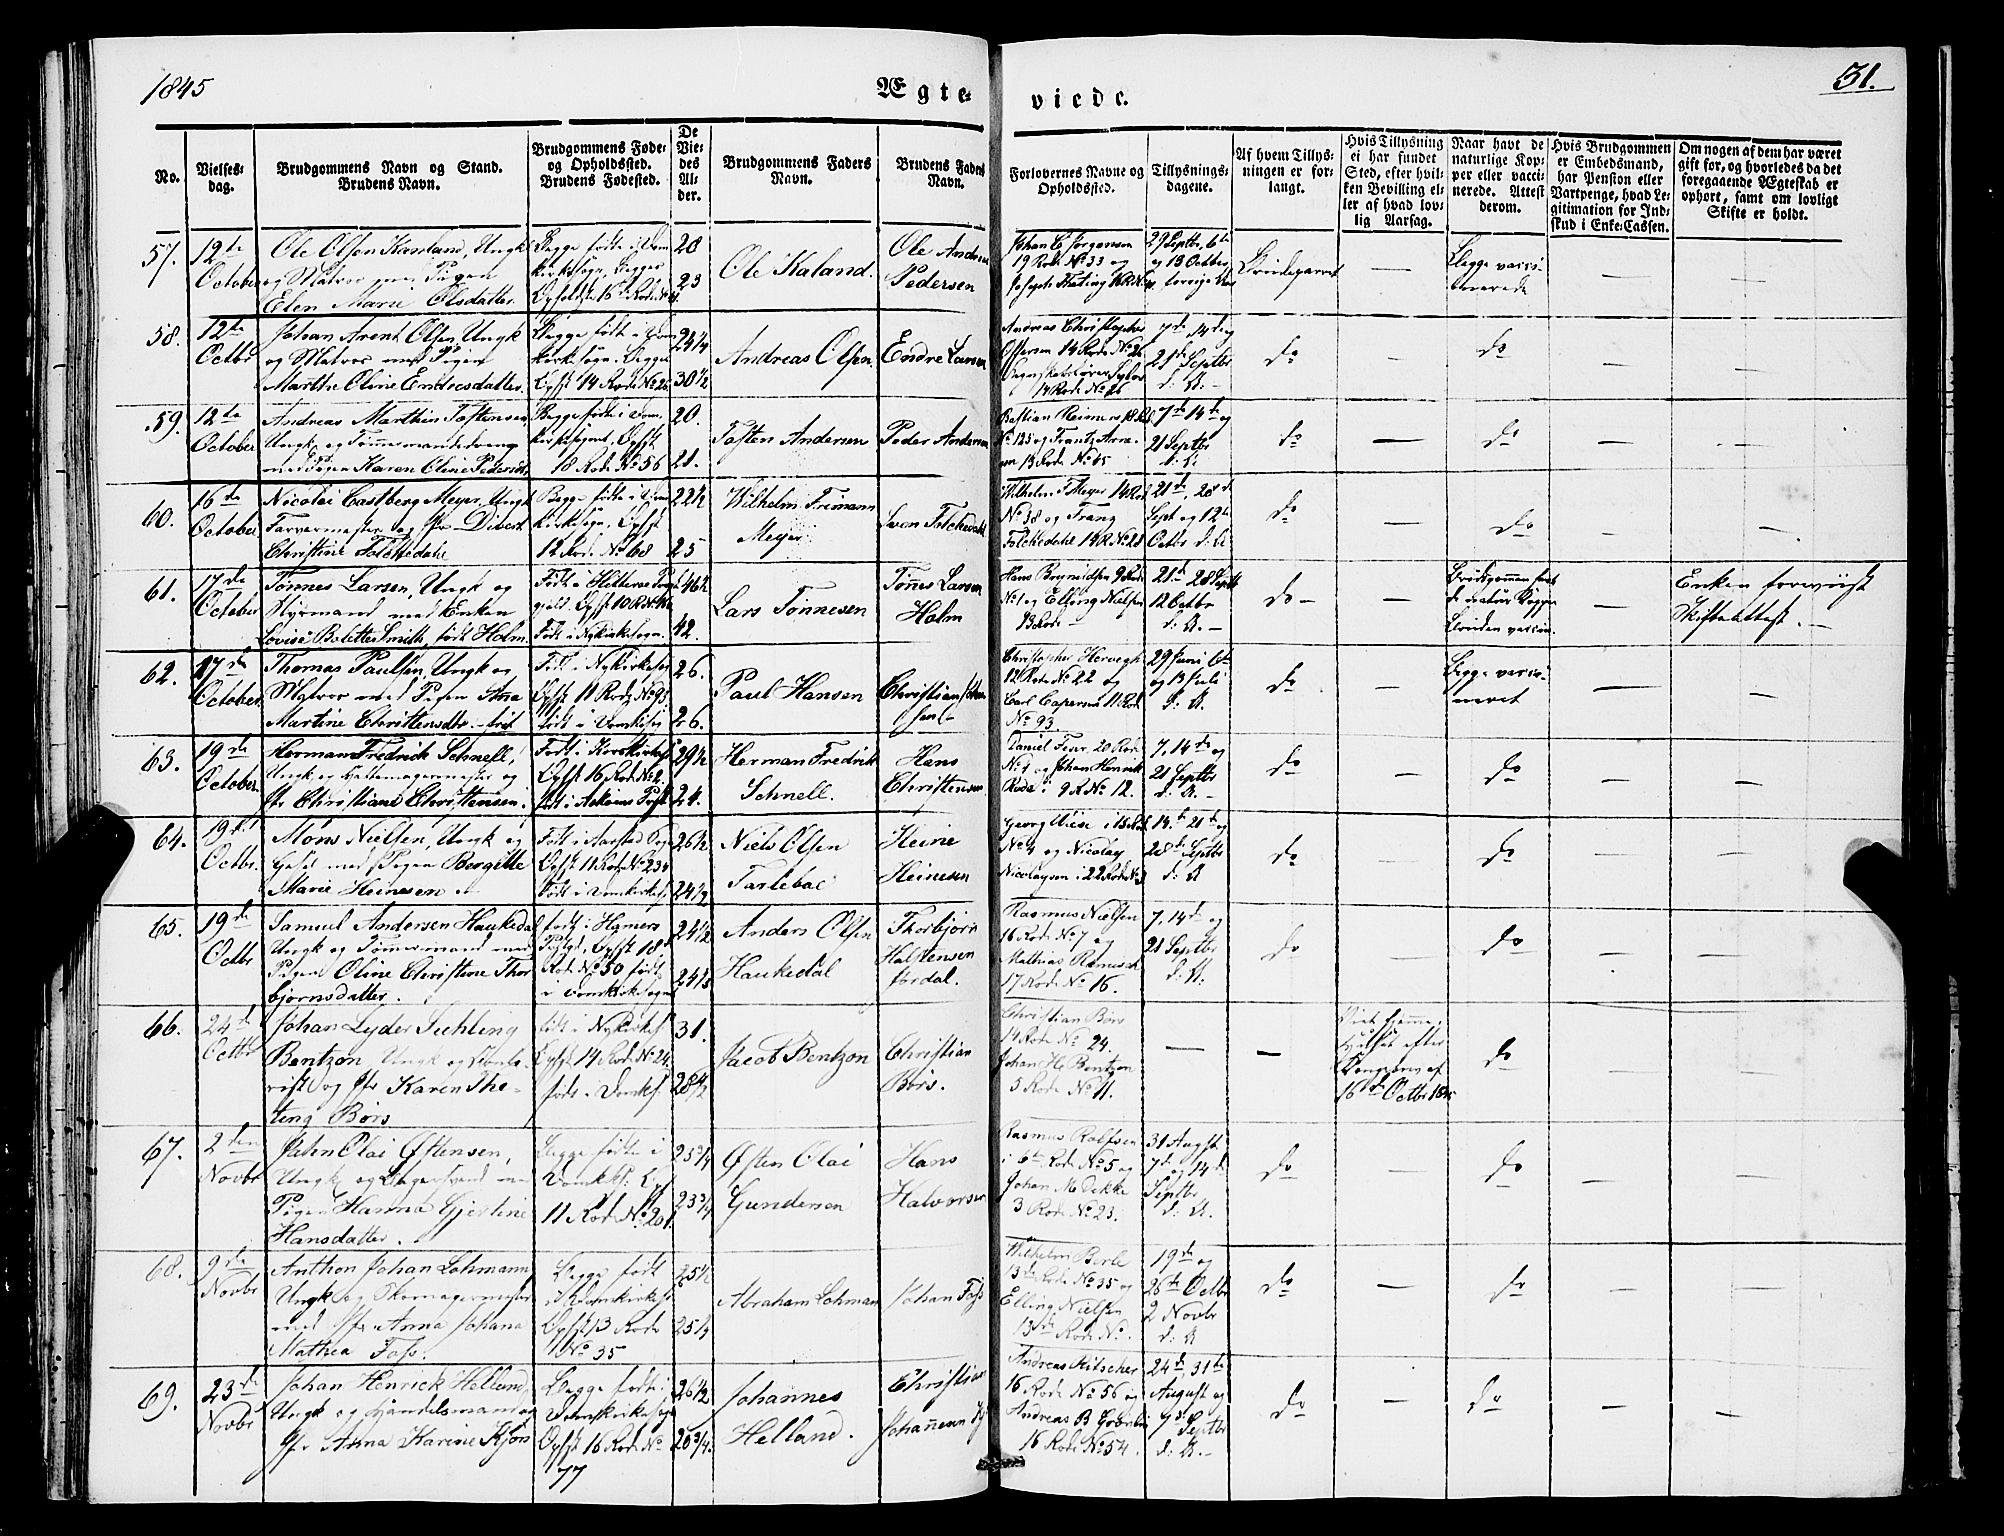 1845
Ægte-
viede.
31.
No.
Vielses-
dag.
Brudgommens Navn og Stand.
Brudens Navn.
Brudgommens Føde-
og Opholdssted.
Brudens Fødested.
De
Vie-
des
Al-
der.
Brudgommens Faders
Navn.
Brudens Faders
Navn.
Forlovernes Navne og
Opholdssted.
Tillysnings-
dagene.
Af hvem Tillys-
ningen er for-
langt.
Hvis Tillysning
ei har fundet
Sted, efter hvil-
ken Bevilling el-
ler af hvad lov-
lig Aarsag.
Naar havt de
naturlige Kop-
per eller vacci-
nerede. Attest
derom.
Hvis Brudgommen
er Embedsmand,
har Pension eller
Vartpenge, hvad Le-
gitimation for Ind-
skud i Enke-Cassen.
Om nogen af dem har været
gift før, og hvorledes da det
foregaaende Ægteskab er
ophørt, samt om lovligt
Skifte er holdt.
57.
12te
October
Ole Olsen Kanland, Ungk
og Matros med Pigen
Elen Marie Olsdatter
Begge fødte i Dom
kirkesogn, Begges
28
23
Ole Kaland.
Ole Anders
Pedersen
Johan C Jørgensen
19 Rode No 33 og
29 Septbr, 6te
og 13 Octbr
Brudeparret
Begge vacci-
nerede
58.
12te
Octbr
Johan Arent Olsen, Ungk
og Matros med Pigen
Marthe Oline Endresdatter
Begge fødte i Dom
kirkesogn. Begge
Opst 14 Rode No 26
24 1/4
30 1/2
Andreas Olsen
Endre Larsen
Andreas Christopher
14 Rode No 26
14 Rode No 26
7de, 14de og
21de Septbr
d: A. -
do
do
59.
12te
October
Andreas Marthin Tostensen
Ungk og Tømmermandsdreng
med Pigen Karen Oline Pedersdt
Begge fødte i Dom.
kirkesognet, Opst
18 Rode No 56
20.
21.
Tosten Andersen
Peder Andersen
Bastian Reimers 18 Rode
No 125 og Frantz Arne-
sen 13 Rode No 65
7de 14de og
21 Septbr
d: A
do
do
60.
16de
October
Nicolai Castberg Meyer, Ungk
Farvermester og Jfr Divert
Christine Folchedahl
Begge fødte i Dom
kirkesogn, Opst
12 Rode No 68
22 1/2
25
Wilhelm Frimann
Meyer
Sven Folchedahl
Wilhelm F Meyer 14 Rode
No 38 og Frang
Folchedahl 14 R No 28
21de, 28de
Sept og 12te
Octbr d: A
do
do
61.
17de
October
Tønnes Larsen, Ungk og
Styrmand med Enken
Lovise Bolette Smith, født Holm
Født i Hitterøe Præst
gjeld. Opst 10 R
Født i Nykirkesogn.
46 1/2
42.
Lars Tønnesen
Tønnes Larsen
Holm
Hans Brynildsen 9 Rode
No 1 og Elling Nielsen
13 Rode -
21de 28 Septb
12 Octbr
d: A. -
do -
Brudgommen havt
de naturl. Kopper
Bruden vaccin.
Enken foreviist
Skifteattest. -
62.
17de
October
Thomas Paulsen, Ungk og
Matros med Pigen Ana
Martine Christensdtr.
Født i Nykirkesog
Opst 11 Rode No 93
født i Domkisog
26.
26.
Paul Hansen
Christian Johan
sen -
Christopher Hervegh
12 Rode No 22 og
Carl Caspersen 11 Rode
No 93
29 Juni 6te
og 13 Juli
d: A.
do
Begge vacci-
neret
63.
19de
October
Herman Fredrik Schnell,
Ungk og Hattemagermester og
Jfr Christiane Christensen.
Født i Korskirkes
Opst 16 Rode No 2.
født i Askøens Præst
29 1/2
24.
Herman Fredrik
Schnell.
Hans
Christensen
Daniel Feur. 20 Rode
No 4 og Johan Henrik
Rode i 9 R No 12.
7, 14de og
21 Septbr
d: A. -
do
do
64.
19de
Octbr.
Mons Nielsen, Ungk og
Gesel med Pigen Bergitte
Marie Heinesen
Født i Aarstad
Opst 11 Rode No 234
Født i Domkirkesg
26 1/2
24 1/2
Niels Olsen
Tarlebøe
Heine
Heinesen
Georg Wiese i 15 Rode
No 4 og Nicolay
Nicolaysen i 22 Rode No 3
14de 21de og
28de Septbr
d: A
do
do
65.
19de
Octbr
Samuel Andersen Haukedal
Ungk og Tømmermand med
Pigen Oline Christine Thor
bjørnsdatter.
født i Hamers
Prstgd, Opst 18de
Rode No 50 født
i Domkirkesogn
24 1/2
24 1/3
Anders Olsen
Haukedal
Thorbjørn
Halstensen
Jordal.
Rasmus Nielsen
16 Rode No 7 og
Mathias Römisch
17 Rode No 16.
7, 14de og
21 Septbr
d: A.
do
do
66.
24de
Octbr
Johan Lyder Suhling
Bentzon, Ungk og
og Jfr Karen The-
ting Börs
født i Nykirkes
Opst 14 Rode No 24.
født i Domks.
31.
28 1/2
Jacob Bentzon
Christian
Börs.
Christian Börs
14 Rode No 24.
Johan H Bentzon
5 Rode No 11.
Viet hjemme i
Huset efter
16de Octbr 1845
do
67.
2den
Novbr
John Olai Østensen,
Ungk og med
Pigen Hanna Gjertine
Hansdatter.
Begge fødte i
Domkiks: Opst
11 Rode No 201
25 3/4
23 3/4
Østen Olai
Gundersen
Hans
Halvorsen
Rasmus Rolfsen
i 6te Rode No 5 og
Johan M Dekke
3 Rode No 23.
31 Augst
7de og 14de
Septbr
d: A.
do
do
68.
9de
Novbr
Anthon Johan Lohmann
Ungk og Skomagermester
med Jfr Anna Johana
Mathea Fass.
Begge født
i Domkirkes
Opst 13 Rode
No 35
25 1/2
25 1/4
Abraham Lohman
Johan Fass
Wilhelm Berle
13de Rode No 35 og
Elling Nielsen
13de Rode No.
19de og
26de Octbr
2 Novbr
d: A
do
do
69.
23de
Novbr
Johan Henrick Helland,
Ungk og Handelsmand og
Jfr Anna Karine Kjøs
Begge fødte i
Domkirkesogn
Opst 16 Rode No
77
26 1/2
20 3/4.
Johannes
Helland.
Christian
Johanesen
Andreas Ritscher
16 Rode No 56 og
Andreas B Grønlie
16 Rode No 54.
24de, 31te
August og
7de Septbr
d: A. -
do
do